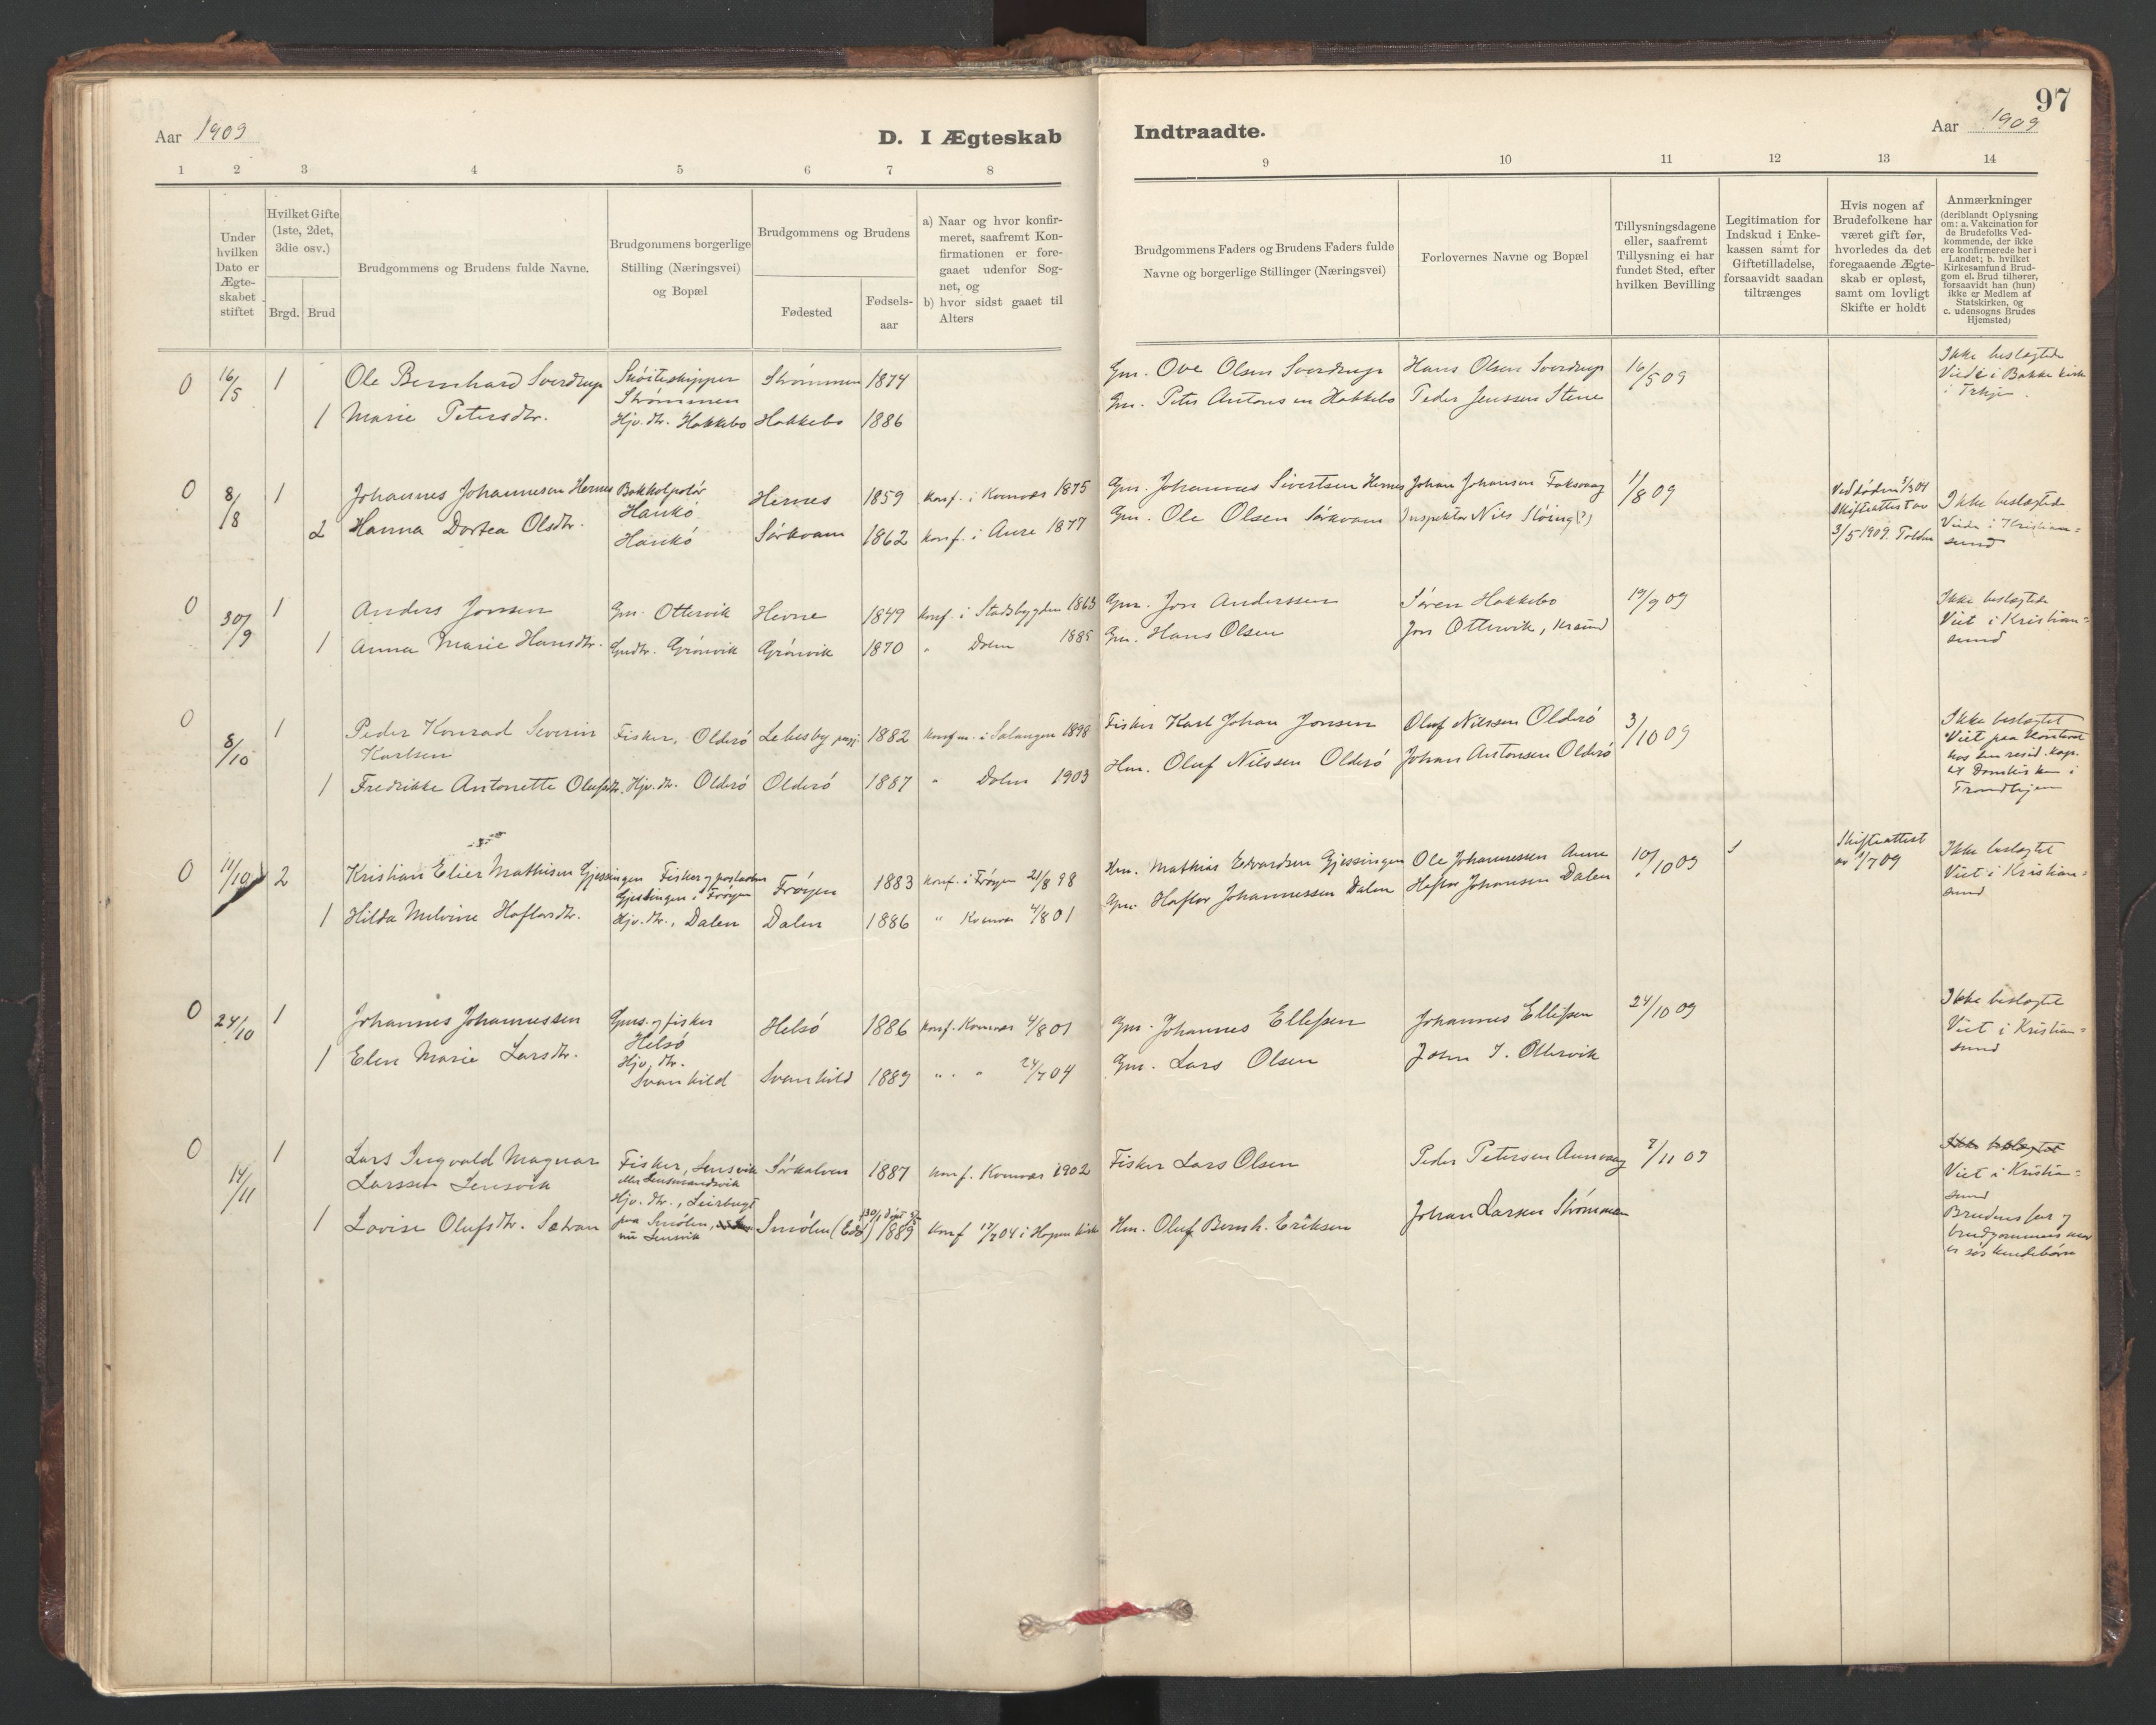 97
Aar 1909
D. I Ægteskab
Indtraadte.
Aar 1909
1 2 3 4 5 6 7 8 9 10 11 12 13 14
Under
hvilken
Dato er
Ægte-
skabet
stiftet
Hvilket Gifte
(1ste, 2det,
3die osv.)
Brgd. Brud
Brudgommens og Brudens fulde Navne.
Brudgommens borgerlige
Stilling (Næringsvei)
og Bopæl
Brudgommens og Brudens
Fødested
Fødsels-
aar
a) Naar og hvor konfir-
meret, saafremt Kon-
firmationen er fore-
gaaet udenfor Sog-
net, og
b) hvor sidst gaaet til
Alters
Brudgommens Faders og Brudens Faders fulde
Navne og borgerlige Stillinger (Næringsvei)
Forlovernes Navne og Bopæl
Tillysningsdagene
eller, saafremt
Tillysning ei har
fundet Sted, efter
hvilken Bevilling
Legitimation for
Indskud i Enke-
kassen samt for
Giftetilladelse,
forsaavidt saadan
tiltrænges
Hvis nogen af
Brudefolkene har
været gift før,
hvorledes da det
foregaaende Ægte-
skab er opløst,
samt om lovligt
Skifte er holdt
Anmærkninger
(deriblandt Oplysning
om: a. Vakcination for
de Brudefolks Ved-
kommende, der ikke
ere konfirmerede her i
Landet; b. hvilket
Kirkesamfund Brud-
gom el. Brud tilhører,
forsaavidt han (hun)
ikke er Medlem af
Statskirken, og
c. udensogns Brudes
Hjemsted)
0 16/5 1 Ole Bernhard Sverdrup Skøiteskipper
Strømmen Strømmen 1874 Gm. Ove Olsen Sverdrup Hans Olsen Sverdrup 16/5 09 Ikke beslægtede
Viede i Bakke kirke
i Trhjem.
1 Marie Petersdtr. Hjv. dtr. Hokkebo Hokkebo 1886 Gm. Peter Antonsen Hokkebo Peder Jenssen Stene
0 8/8 1 Johannes Johannesen Hernes
Hankö Hernes 1859 konf. i Kvenvær 1875 Gm. Johannes Sivertsen Hernes Johan Johansen Foksvaag 1/8 09
Skifteattest av
3/5 1909. Ikke beslægtede
Viede i Kristian=
sund
2 Hanna Dortea Olsdtr. Hankö Sørkvam 1862 konf. i Aure 1877 Gm. Ole Olsen Sørkvam Inspektør Nils Sløing(?)
0 30/9 1 Anders Jonsen Gm. Ottervik Hevne 1849 konf. i Stadsbygden 1863 Gm. Jon Anderssen Søren Hokkebo 19/9 09 Ikke beslægtede
Viet i Kristian=
sund
1 Anna Marie Hansdtr. Gmdtr. Grönvik Grönvik 1870 " Dolm 1885 Gm. Hans Olsen Jon Ottervik, Krsund
0 8/10 1 Peder Konrad Severin
Karlsen Fisker, Olderö Lebesby 1882 konf. i Salangen 1898 Fisker Karl Johan Jonsen Oluf Nilssen Olderö 3/10 09 Ikke beslægtet
Viet paa Kontoret
hos den resid. kap.
til Domkirken i
Trondhjem
1 Fredrikke Antonette Olufsdtr. Hjv. dtr. Olderö Olderö 1887 " Dolm 1903 Hm. Oluf Nilssen Olderö Johan Antonsen Olderö
0 11/10 2 Kristian Elier Mathisen Gjessingen Fisker og postaabner
Gjessingen i Frøyen Frøyen 1883 konf. i Frøyen 21/8 98 Hm. Mathias Edvardsen Gjessingen Ole Johannessen Aune 10/10 09 Skifteattest
av 1/7 09 Ikke beslægtet
Viet i Kristian=
sund
1 Hilda Melvine Haflordtr. Hjv. dtr., Dalen Dalen 1886 " Kvenvær 4/8 01 Gm. Haflor Johannessen Dalen Haflor Johansen Dalen
0 24/10 1 Johannes Johannessen Gms. og fisker
Helsö Helsö 1886 konf. Kvenvær 4/8 01 Gm. Johannes Ellefsen Johannes Ellefsen 24/10 09 Ikke beslægtet
Viet i Kristian=
sund
1 Elen Marie Larsdtr. Hjv. dtr.
Svankild Svankild 1889 " " 24/7 04 Gm. Lars Olsen John J. Ottervik
0 14/11 1 Lars Ingvald Magnar
Larssen Lensvik Fisker, Lensvik
eller Lensmandsvik 1887 konf. Kvenvær 1902 Fisker Lars Olsen Peder Petersen Aunvaag 7/11 09 Ikke beslægtet
Viet i Kristian=
sund
Brudens far og
brudgommens mor
er søskendebørn
1 Lovise Olufsdtr. Sætran Hjv. dtr., Leirbugt
paa Smölen,
nu Lensvik Smölen (Edö) 1889 konf 17/7 04 i Hopen kirke Hm. Oluf Bernh. Eriksen Johan Larsen Strömmen